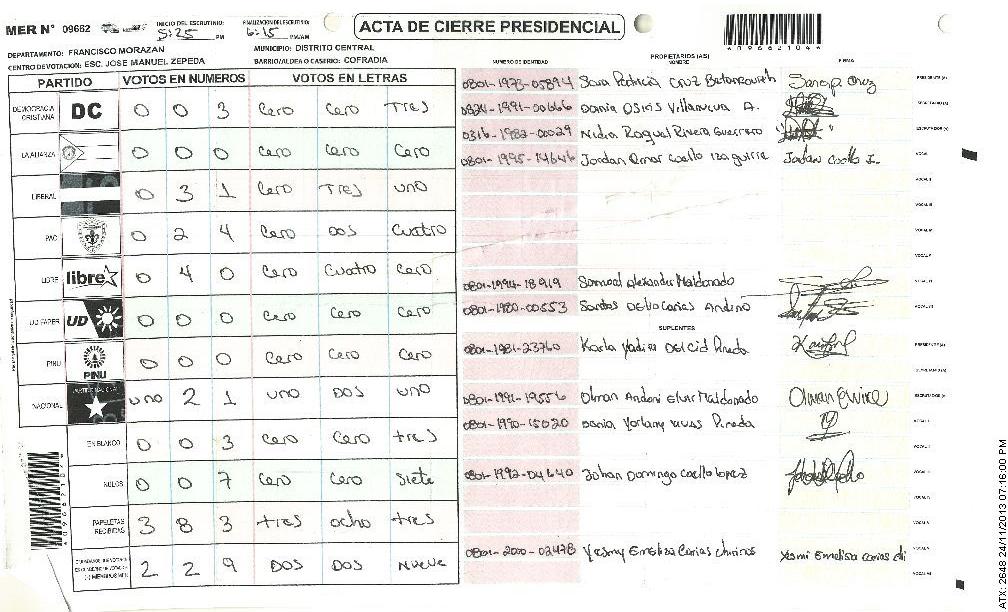 MER N° 09662
INICIO DEL ESCRUTINIO: 5:25 PM
FINALIZACION DEL ESCRUTINIO: 6:15 PM/AM
ACTA DE CIERRE PRESIDENCIAL
*096621044*
DEPARTAMENTO: FRANCISCO MORAZAN
MUNICIPIO: DISTRITO CENTRAL
CENTRO DE VOTACION: ESC. JOSE MANUEL ZEPEDA
BARRIO/ALDEA O CASERIO: COFRADIA
PARTIDO VOTOS EN NUMEROS VOTOS EN LETRAS
DEMOCRACIA CRISTIANA DC 0 0 3 Cero Cero Tres
LA ALIANZA 0 0 0 Cero Cero Cero
LIBERAL 0 3 1 Cero Tres uno
PAC 0 2 4 Cero Dos Cuatro
LIBRE libre 0 4 0 Cero Cuatro Cero
UD FAPER UD 0 0 0 Cero Cero Cero
PINU PINU 0 0 0 Cero Cero Cero
NACIONAL uno 2 1 uno Dos uno
EN BLANCO 0 0 3 Cero Cero tres
NULOS 0 0 7 Cero Cero Siete
PAPELETAS RECIBIDAS 3 8 3 tres ocho tres
2 2 9 Dos Dos Nueve
NUMERO DE IDENTIDAD
PROPIETARIOS (AS)
NOMBRE
FIRMA
0801-1973-05894 Sara Patricia Cruz Betancourth PRESIDENTE (A)
0824-1991-00666 Dania Osiris Villanueva A. SECRETARIO (A)
0316-1982-00029 Nidia Raquel Rivera Guerrero ESCRUTADOR (A)
0801-1995-14646 Jordan Omar Coello Izaguirre Jordan Coello I. VOCAL I
VOCAL II
VOCAL III
VOCAL IV
VOCAL V
0801-1994-18919 Samuel Alexander Maldonado VOCAL VI
0801-1980-00553 Santos Delio Carias Andino VOCAL VII
SUPLENTES
0801-1981-23760 Karla Yadira Del Cid Pineda PRESIDENTE (A)
SECRETARIO (A)
0801-1991-19556 Olman Andoni Elvir Maldonado Olman Elvir ESCRUTADOR (A)
0801-1990-15020 Dania Yorlany Vivas Pineda VOCAL I
VOCAL II
0801-1992-04640 Johan Domingo Coello Lopez VOCAL III
VOCAL IV
VOCAL V
0801-2000-02478 Yesmy Emelisa Carias Chirinos VOCAL VI
VOCAL VII
ATX: 2648 24/11/2013 07:16:00 PM